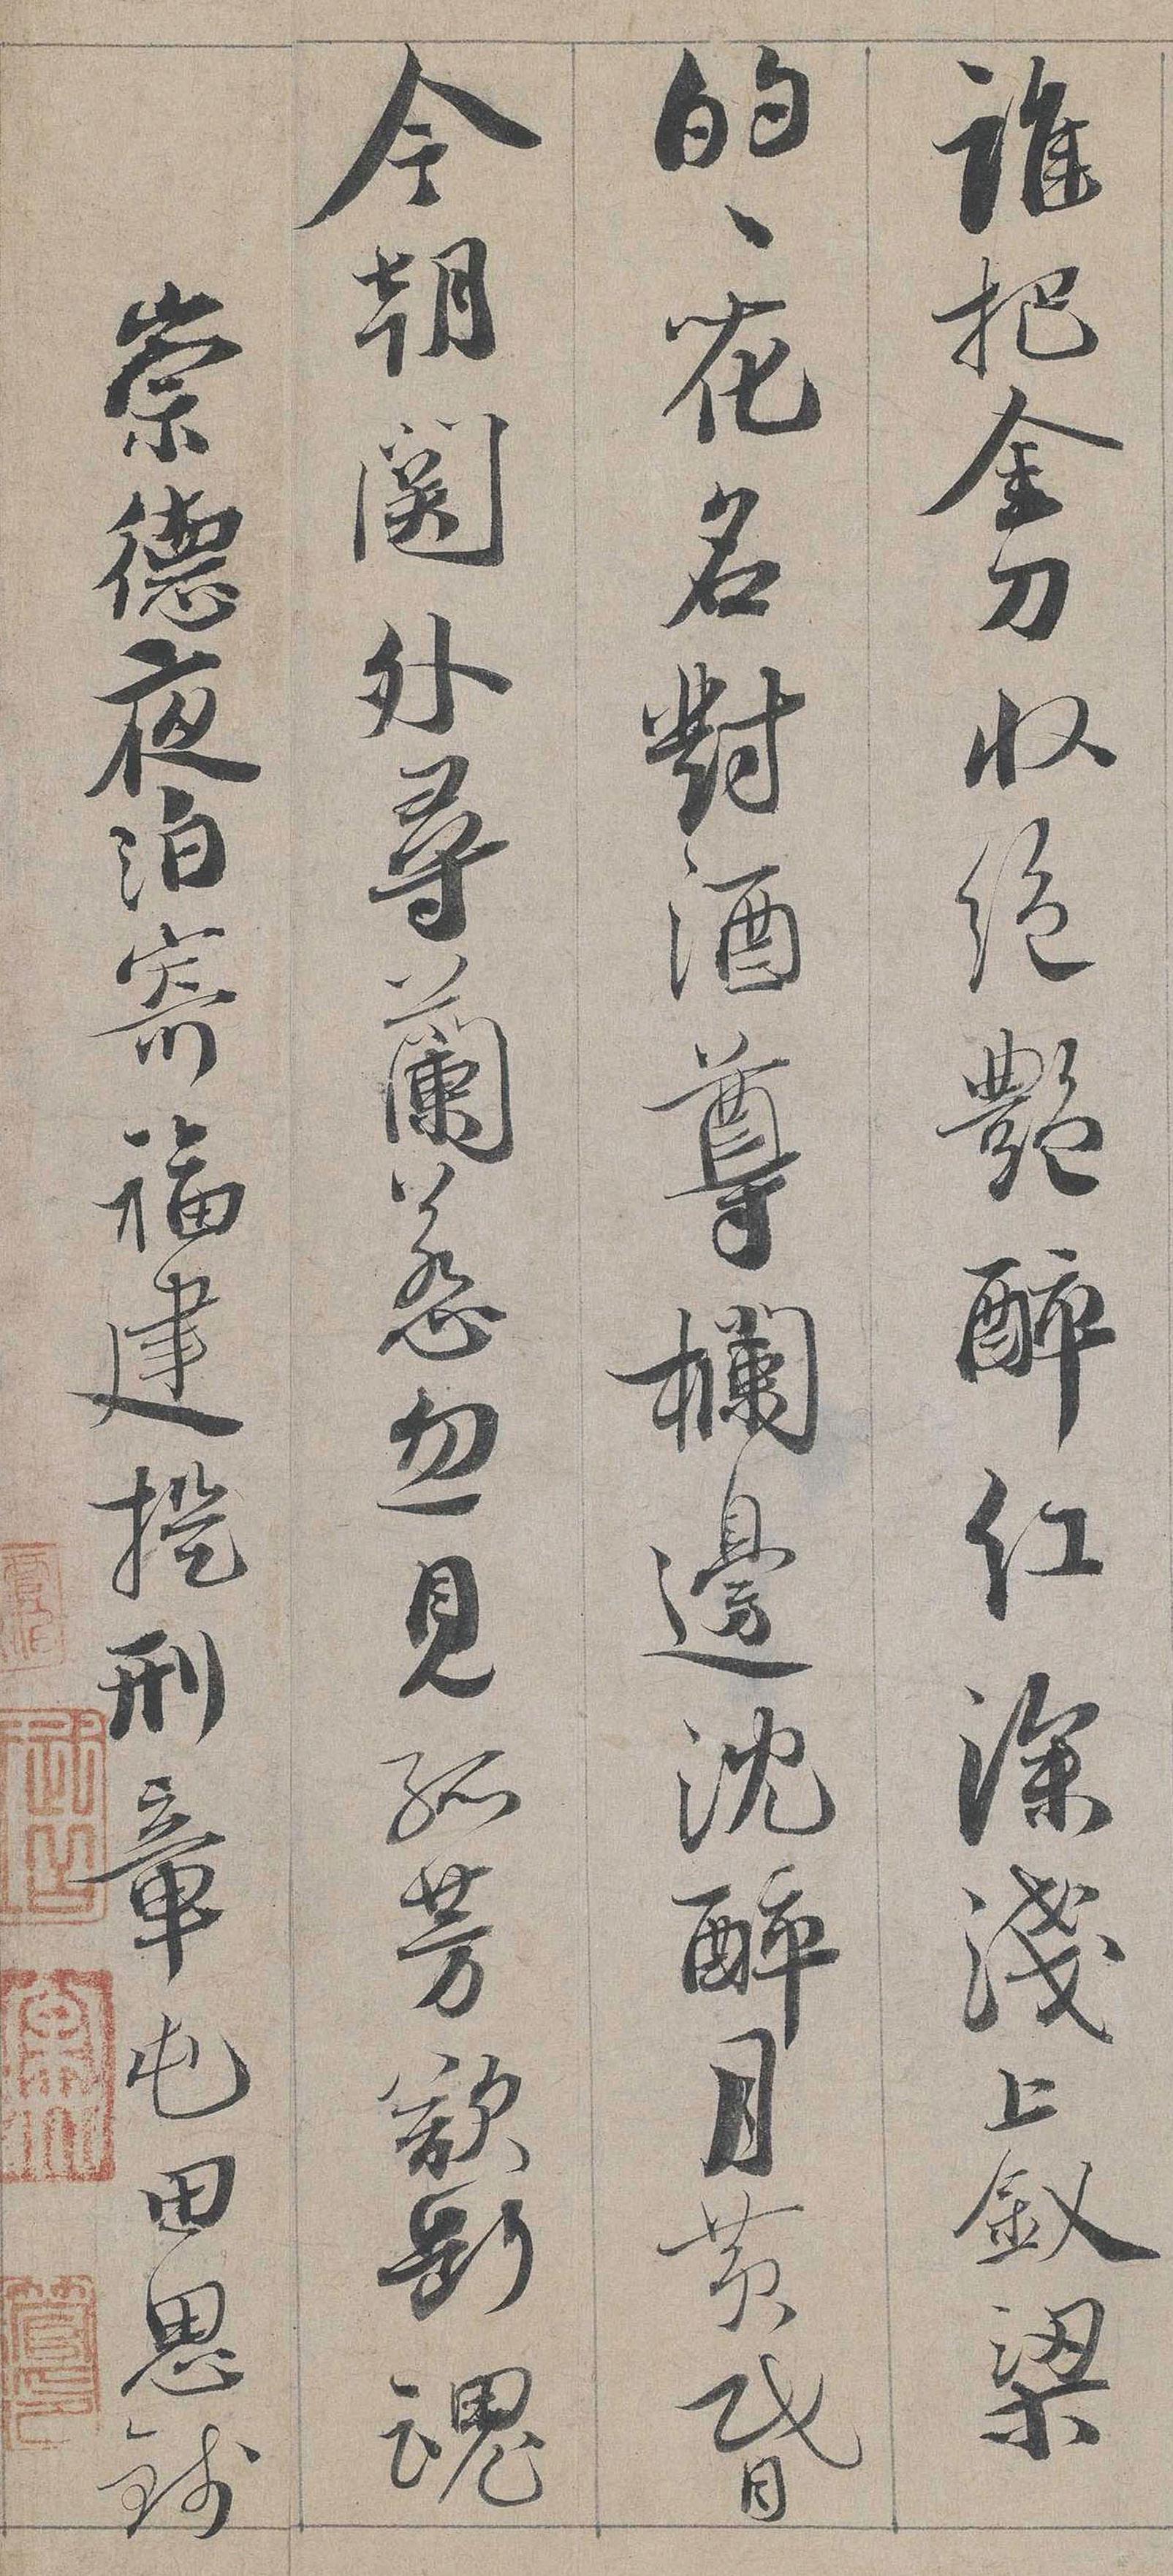 誰把金刀收絕豔醉紅深淺上釵梁
的〻花名對酒尊欄邊沈醉月黃昏
今朝關外尋蘭蕊忽見孤芳欲斷魂
崇德夜泊寄福建提刑章屯田思錢